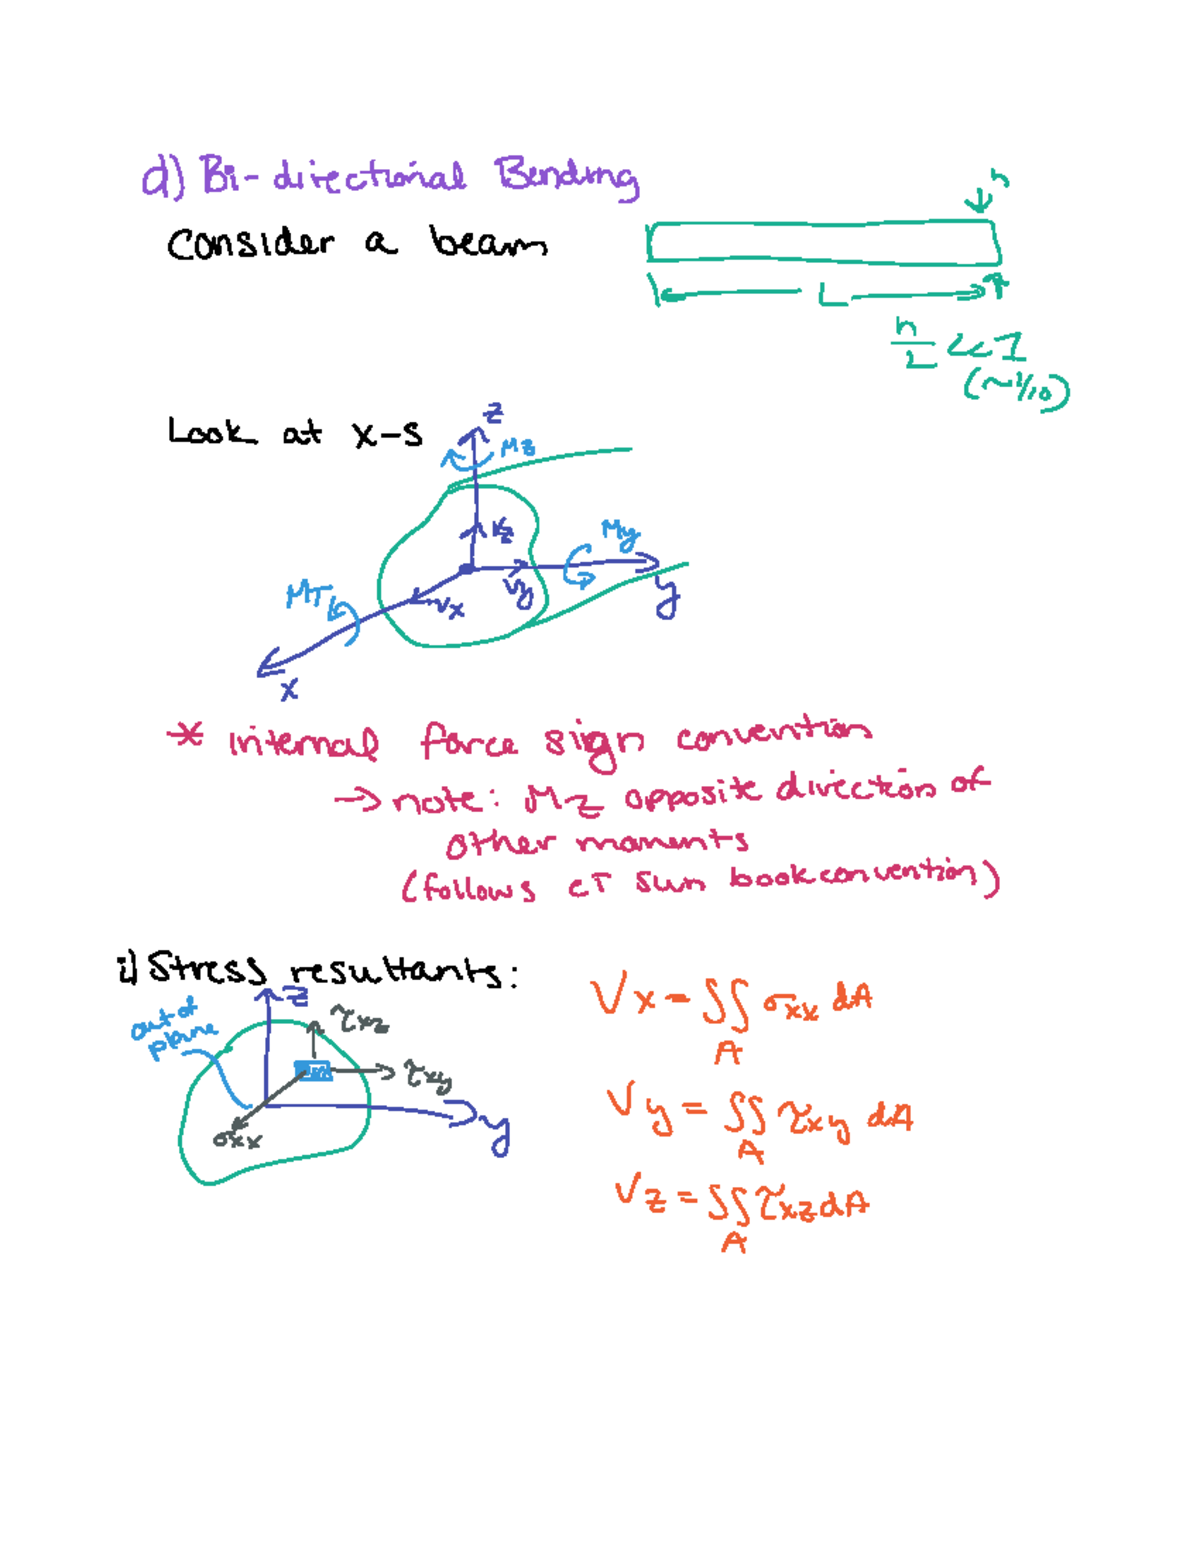 d) Bi-directional Bending
Consider a beam
h
L
h/L << 1
(~1/10)
Look at x-s
z
Mz
Vz
My
Vy
y
MT
Vx
x
* internal force sign convention
→ note: Mz opposite direction of
other moments
(follows CT Sun book convention)
i) Stress resultants:
out of
plane
z
τxz
τxy
σxx
y
Vx = ∬ σxx dA
A
Vy = ∬ τxy dA
A
Vz = ∬ τxz dA
A